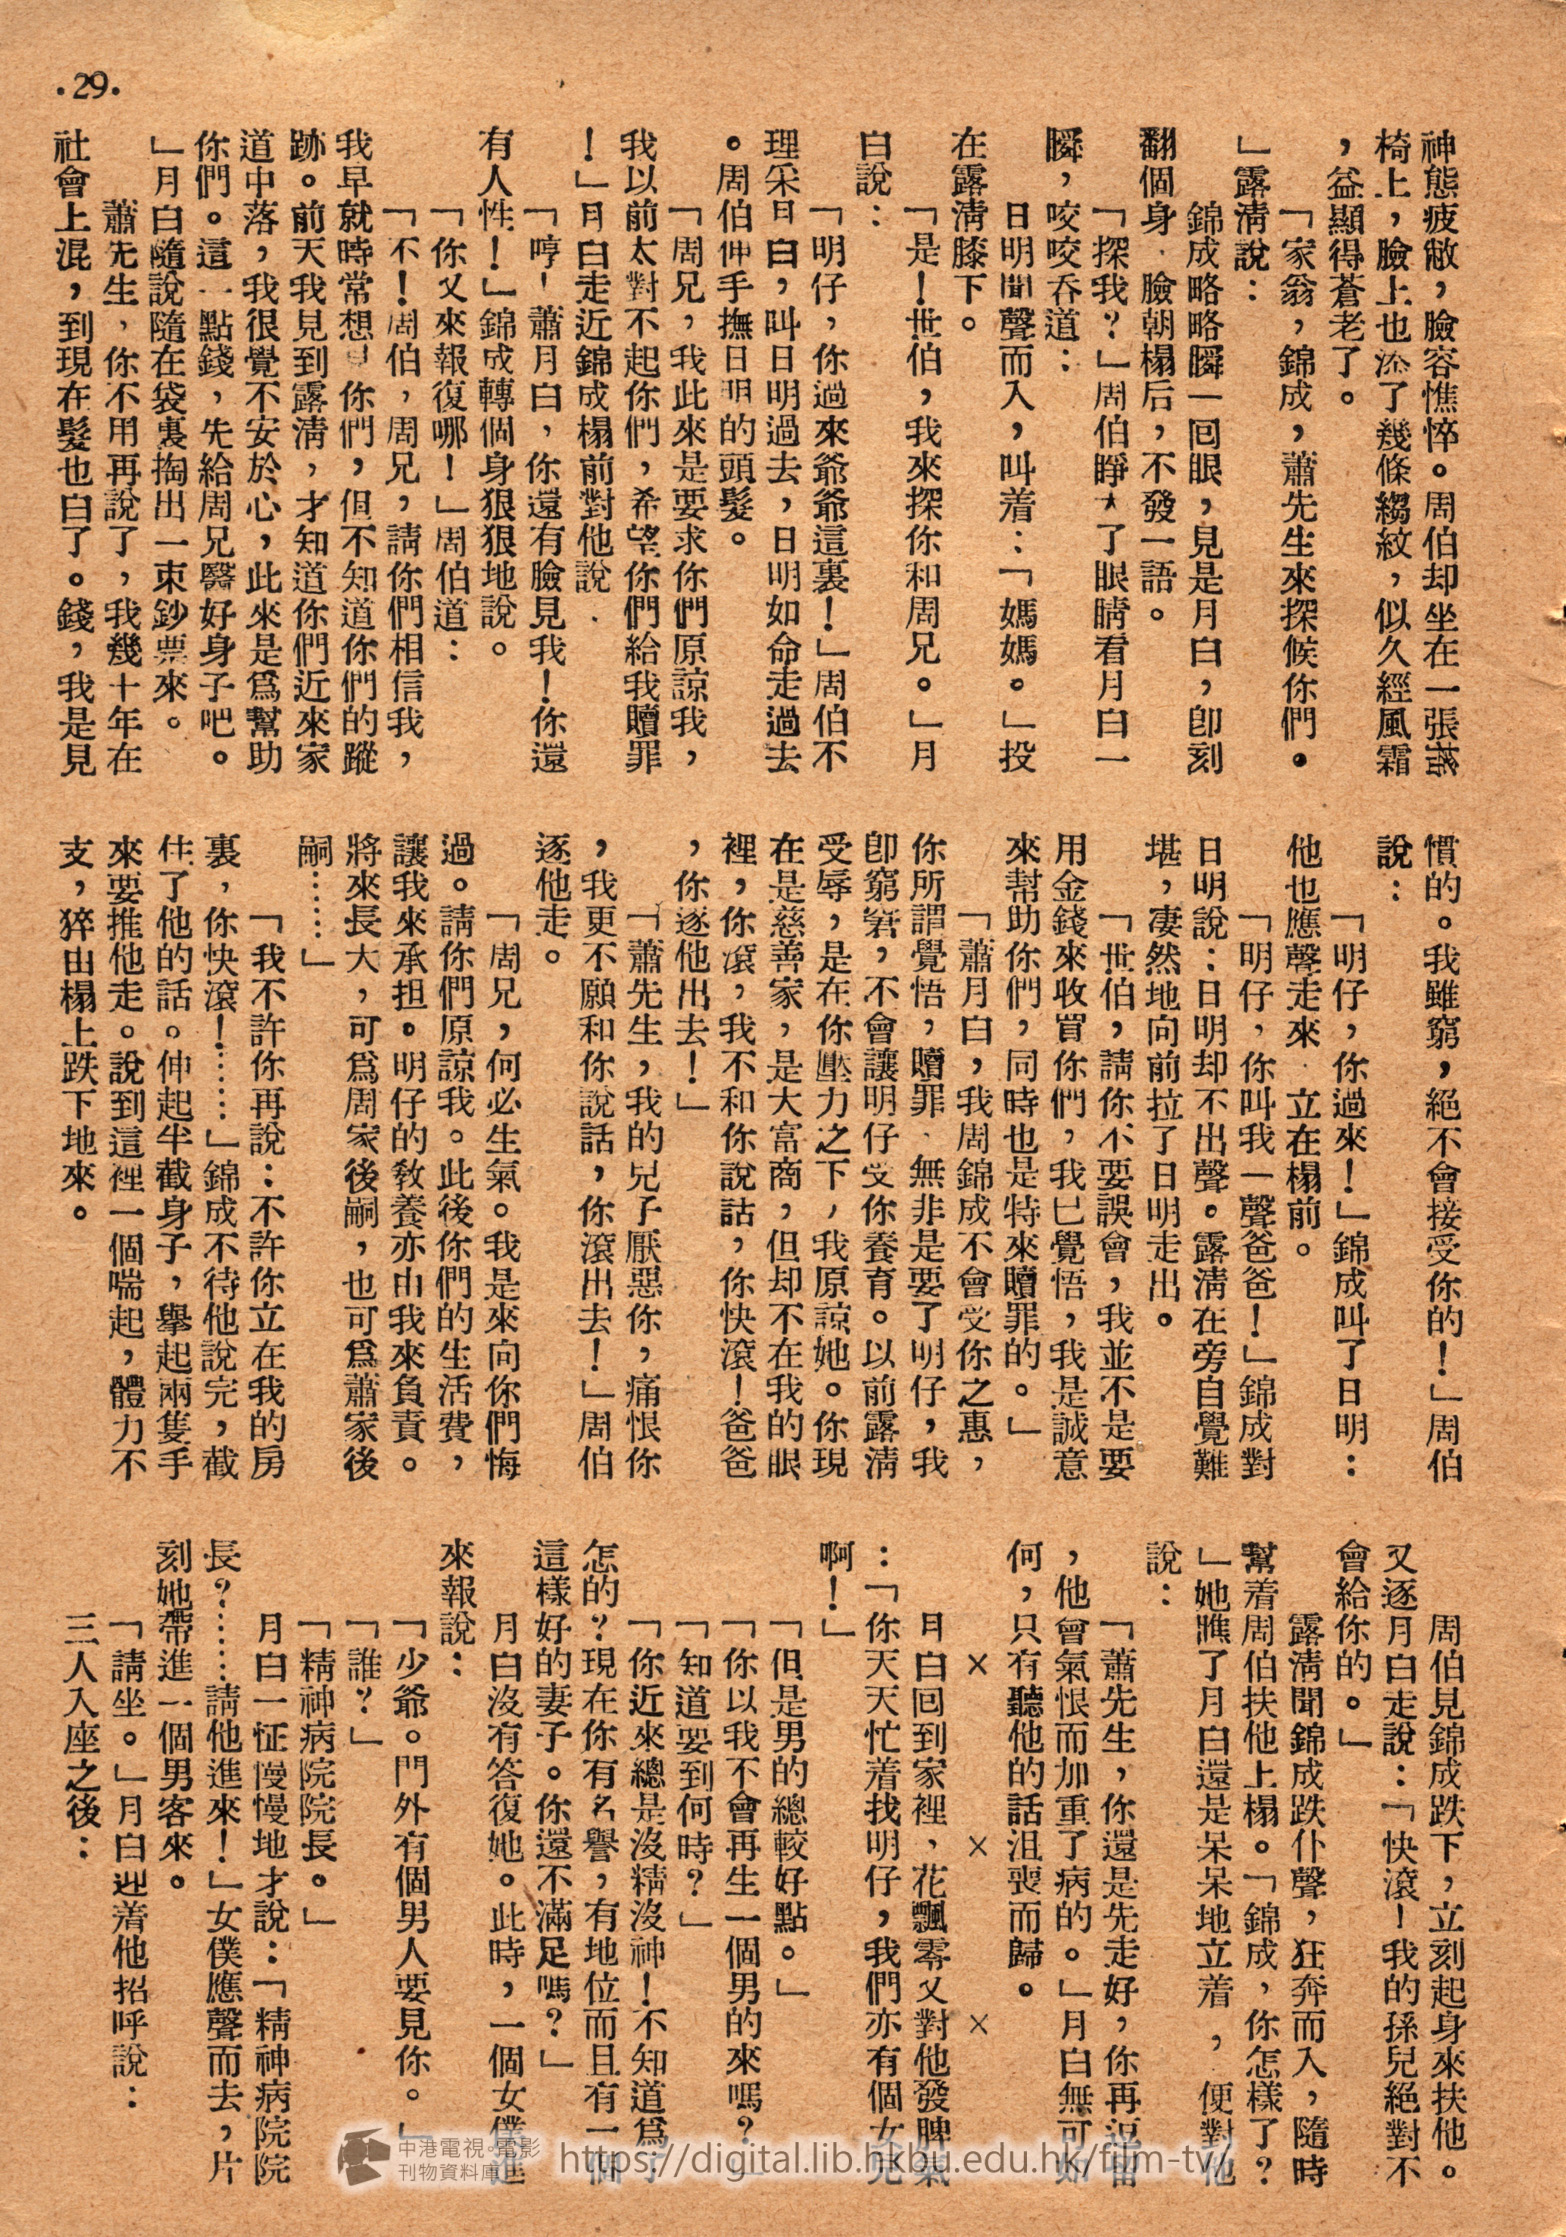 ·29·
神態疲敝，臉容憔悴。周伯却坐在一張
椅上，臉上也添了幾條縐紋，似久經風霜
，益顯得蒼老了。
「家翁，錦成，蕭先生來探候你們。
」露淸說：
錦成略略瞬一囘眼，見是月白，卽刻
翻個身，臉朝榻后，不發一語。
「探我？」周伯睜大了眼睛看月白一
瞬，咬咬吞道：
日明聞聲而入，叫着：「媽媽。」投
在露淸膝下。
「是！世伯，我來探你和周兄。」月
白說：
「明仔，你過來爺爺這裏！」周伯不
理采月白，叫日明過去，日明如命走過去
。周伯伸手撫日明的頭髮。
「周兄，我此來是要求你們原諒我，
我以前太對不起你們，希望你們給我贖罪
！」月白走近錦成榻前對他說．
「哼！蕭月白，你還有臉見我！你還
有人性！」錦成轉個身狠狠地說。
「你又來報復哪！」周伯道：
「不！周伯，周兄，請你們相信我，
我早就時常想見你們，但不知道你們的蹤
跡。前天我見到露淸，才知道你們近來家
道中落，我很覺不安於心，此來是爲幫助
你們。這一點錢，先給周兄醫好身子吧。
」月白隨說隨在袋裏掏出一束鈔票來。
蕭先生，你不用再說了，我幾十年在
社會上混，到現在髮也白了。錢，我是見
慣的。我雖窮，絕不會接受你的！」周伯
說：
「明仔，你過來！」錦成叫了日明：
他也應聲走來．立在榻前。
「明仔，你叫我一聲爸爸！」錦成對
日明說：日明却不出聲。露淸在旁自覺難
堪，凄然地向前拉了日明走出。
「世伯，請你不要誤會，我並不是要
用金錢來收買你們，我已覺悟，我是誠意
來幫助你們，同時也是特來贖罪的。」
「蕭月白，我周錦成不會受你之惠，
你所謂覺悟，贖罪、無非是要了明仔，我
卽窮窘，不會讓明仔受你養育。以前露淸
受辱，是在你壓力之下，我原諒她。你現
在是慈善家，是大富商，但却不在我的眼
裡，你滾，我不和你說話，你快滾！爸爸
，你逐他出去！」
「蕭先生，我的兒子厭惡你，痛恨你
，我更不願和你說話，你滾出去！」周伯
逐他走。
「周兄，何必生氣。我是來向你們悔
過。請你們原諒我。此後你們的生活費，
讓我來承担。明仔的敎養亦由我來負責。
將來長大，可爲周家後嗣，也可爲蕭家後
嗣……」
「我不許你再說：不許你立在我的房
裏，你快滾！……」錦成不待他說完，截
住了他的話。伸起半截身子，擧起兩隻手
來要推他走。說到這裡一個喘起，體力不
支，猝由榻上跌下地來。
周伯見錦成跌下，立刻起身來扶他。
又逐月白走說：「快滾！我的孫兒絕對不
會給你的。」
露淸聞錦成跌仆聲，狂奔而入，隨時
幫着周伯扶他上榻。「錦成，你怎樣了？
」她瞧了月白還是呆呆地立着，便對他
說：
「蕭先生，你還是先走好，你再逗留
，他會氣恨而加重了病的。」月白無可如
何，只有聽他的話沮喪而歸。
× × ×
月白囘到家裡、花飄零又對他發脾氣
：「你天天忙着找明仔，我們亦有個女兒
啊！」
「但是男的總較好點。」
「你以我不會再生一個男的來嗎？」
「知道要到何時？」
「你近來總是沒精沒神！不知道爲了
怎的？現在你有名譽，有地位而且有一個
這樣好的妻子。你還不滿足嗎？」
月白沒有答復她。此時，一個女僕進
來報說：
「少爺。門外有個男人要見你。」
「誰？」
「精神病院院長。」
月白一怔慢慢地才說：「精神病院院
長？……請他進來！」女僕應聲而去，片
刻她帶進一個男客來。
「請坐。」月白迎着他招呼說：
三人入座之後：
中港電視·電影
刊物資料庫
https://digital.lib.hkbu.edu.hk/film-tv/